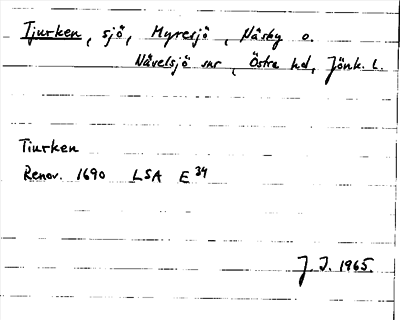 Tjurken, sjö, Myresjö, Näsby o.
Nävelsjö snr, Östra hd, Jönk. l.
Tiurken
Renov. 1690 LSA E 34
J. I. 1965.